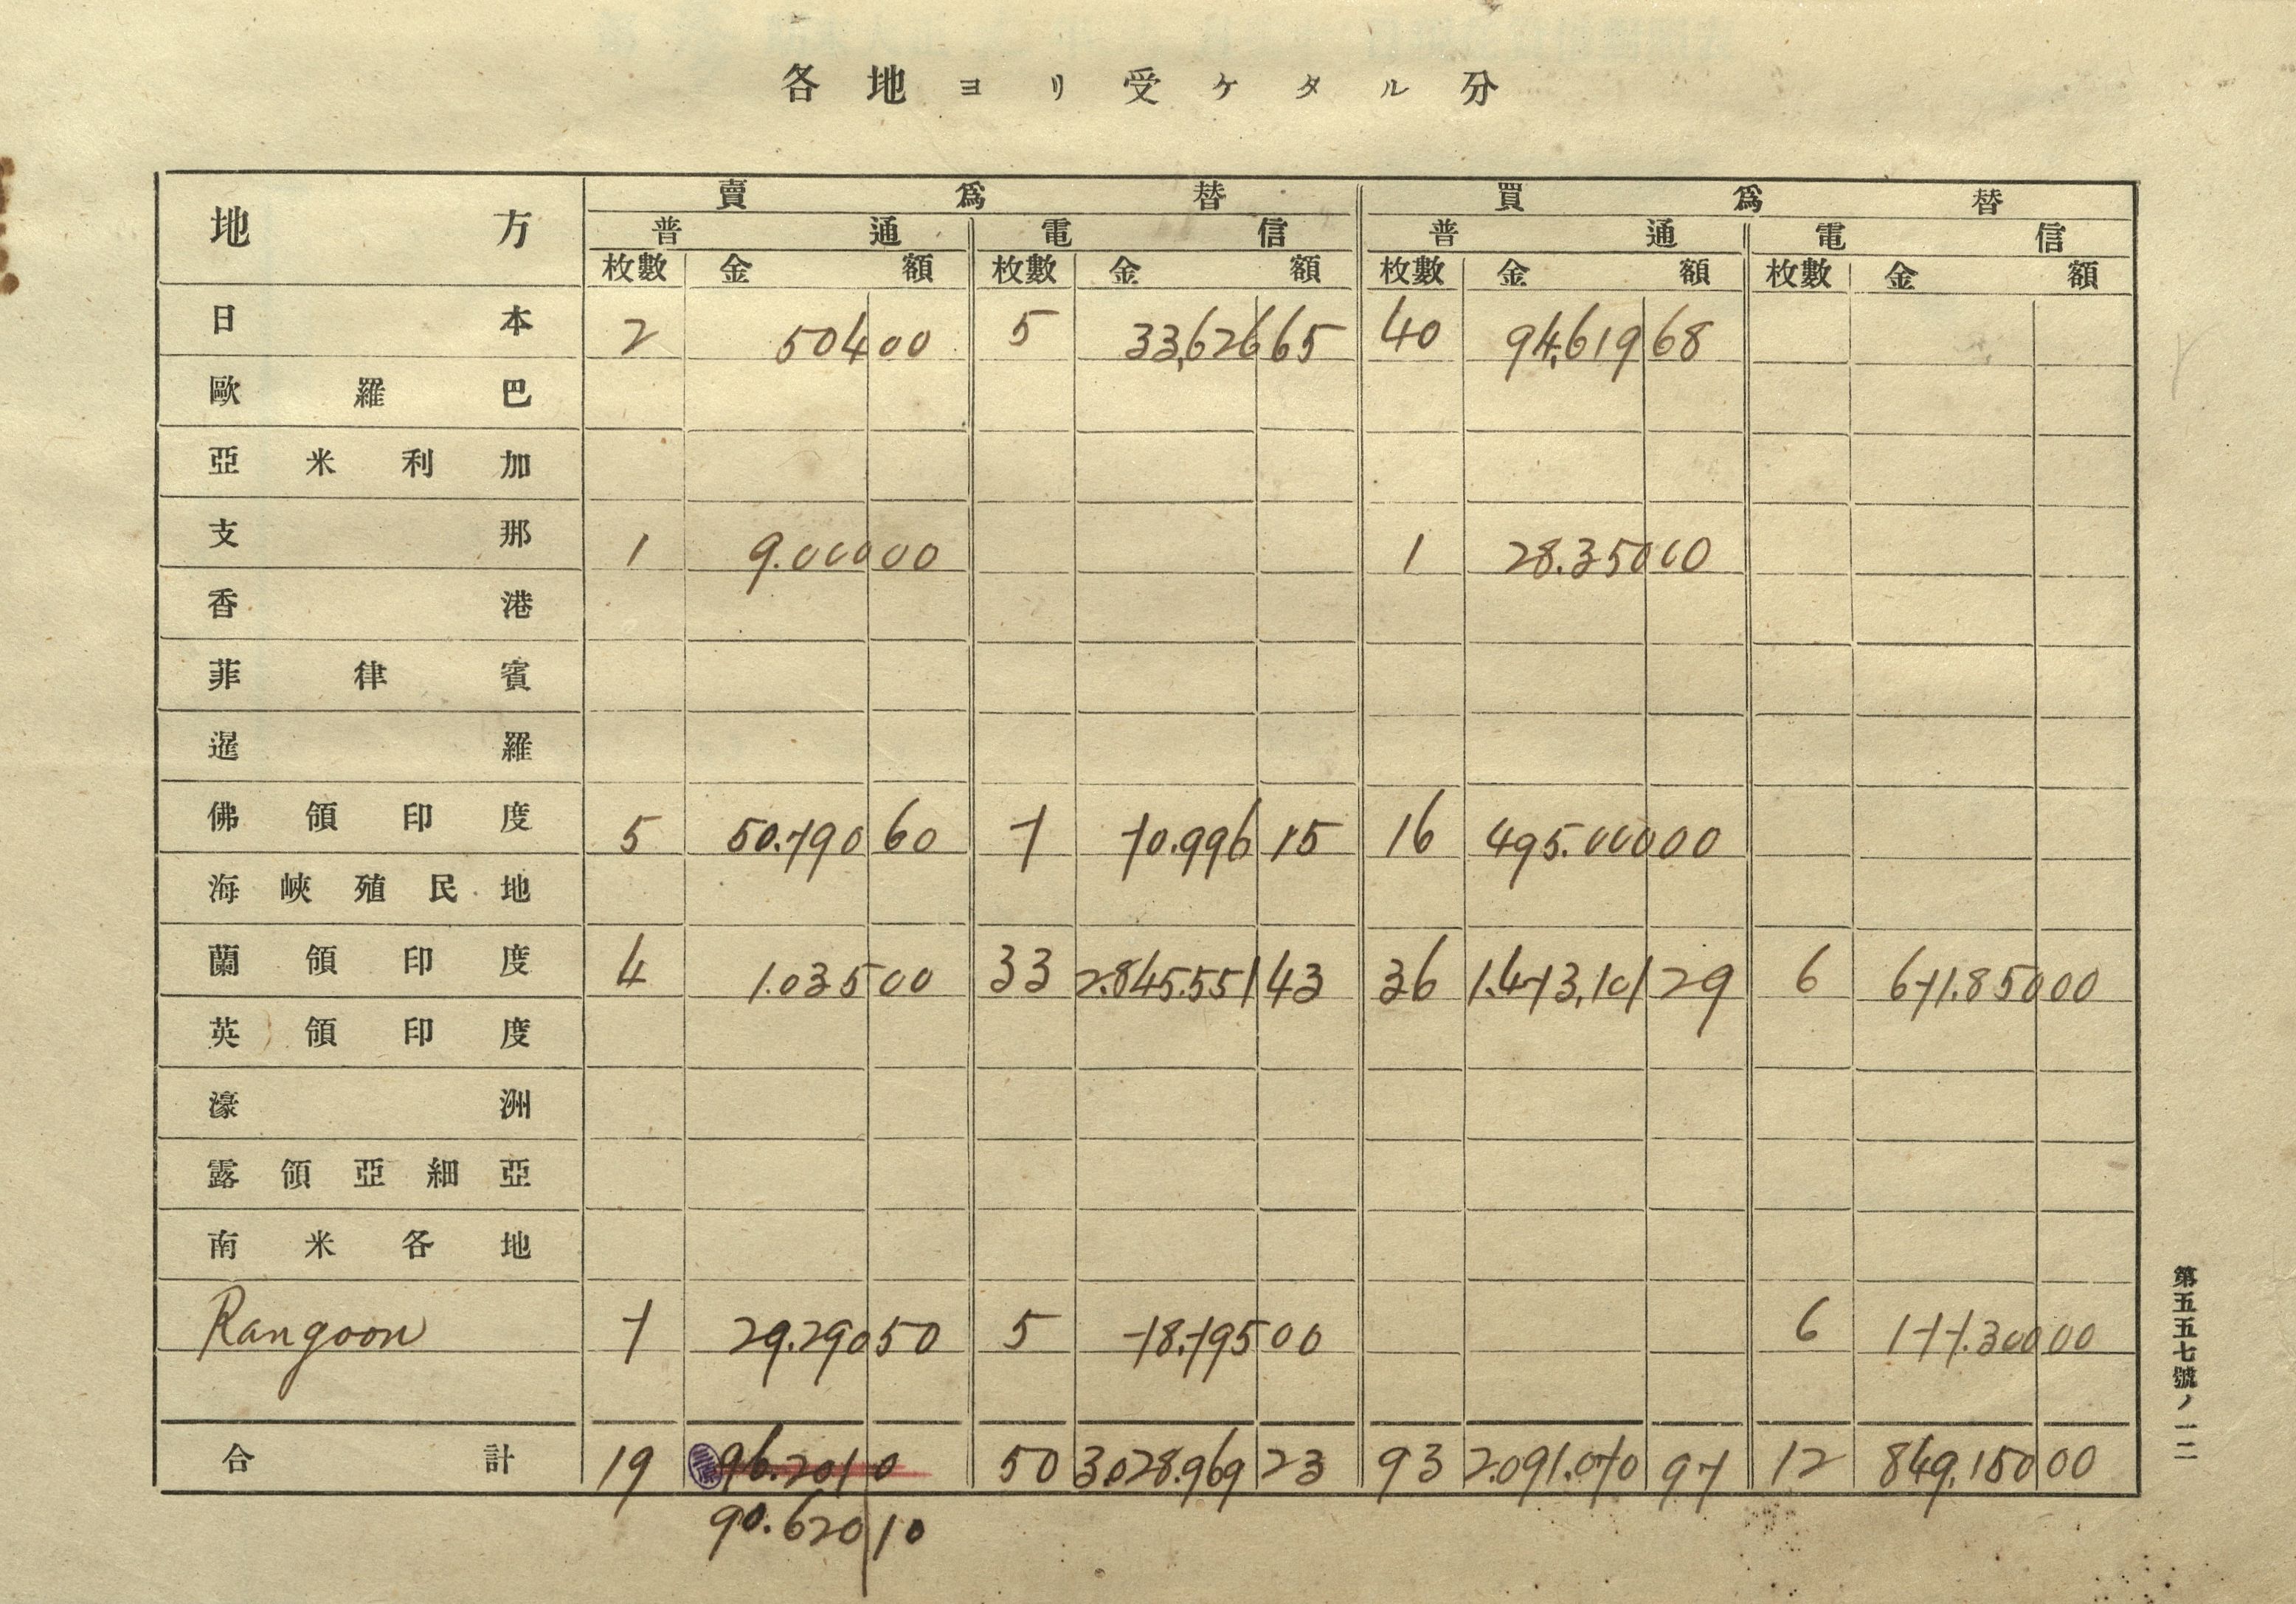 各地ヨリ受ケタル分
地方 賣爲替 買爲替
普通 電信 普通 電信
枚數 金額 枚數 金額 枚數 金額 枚數 金額
日本 2 504 00 5 33,626 65 40 94,619 68
歐羅巴
亞米利加
支那 1 9.000 00 1 28.350 00
香港
菲律賓
暹羅
佛領印度 5 50.790 60 7 70.996 15 16 495.000 00
海峽殖民地
蘭領印度 4 1.035 00 33 2.845.551 43 36 1.473,101 29 6 671.850 00
英領印度
濠洲
露領亞細亞
南米各地
Rangoon 7 29.290 50 5 78.795 00 6 177.300 00
合計 19 三原 96.201 0 50 3.028.969 23 93 2.091.070 97 12 849.150 00
90.620 10
第五五七號ノ一二